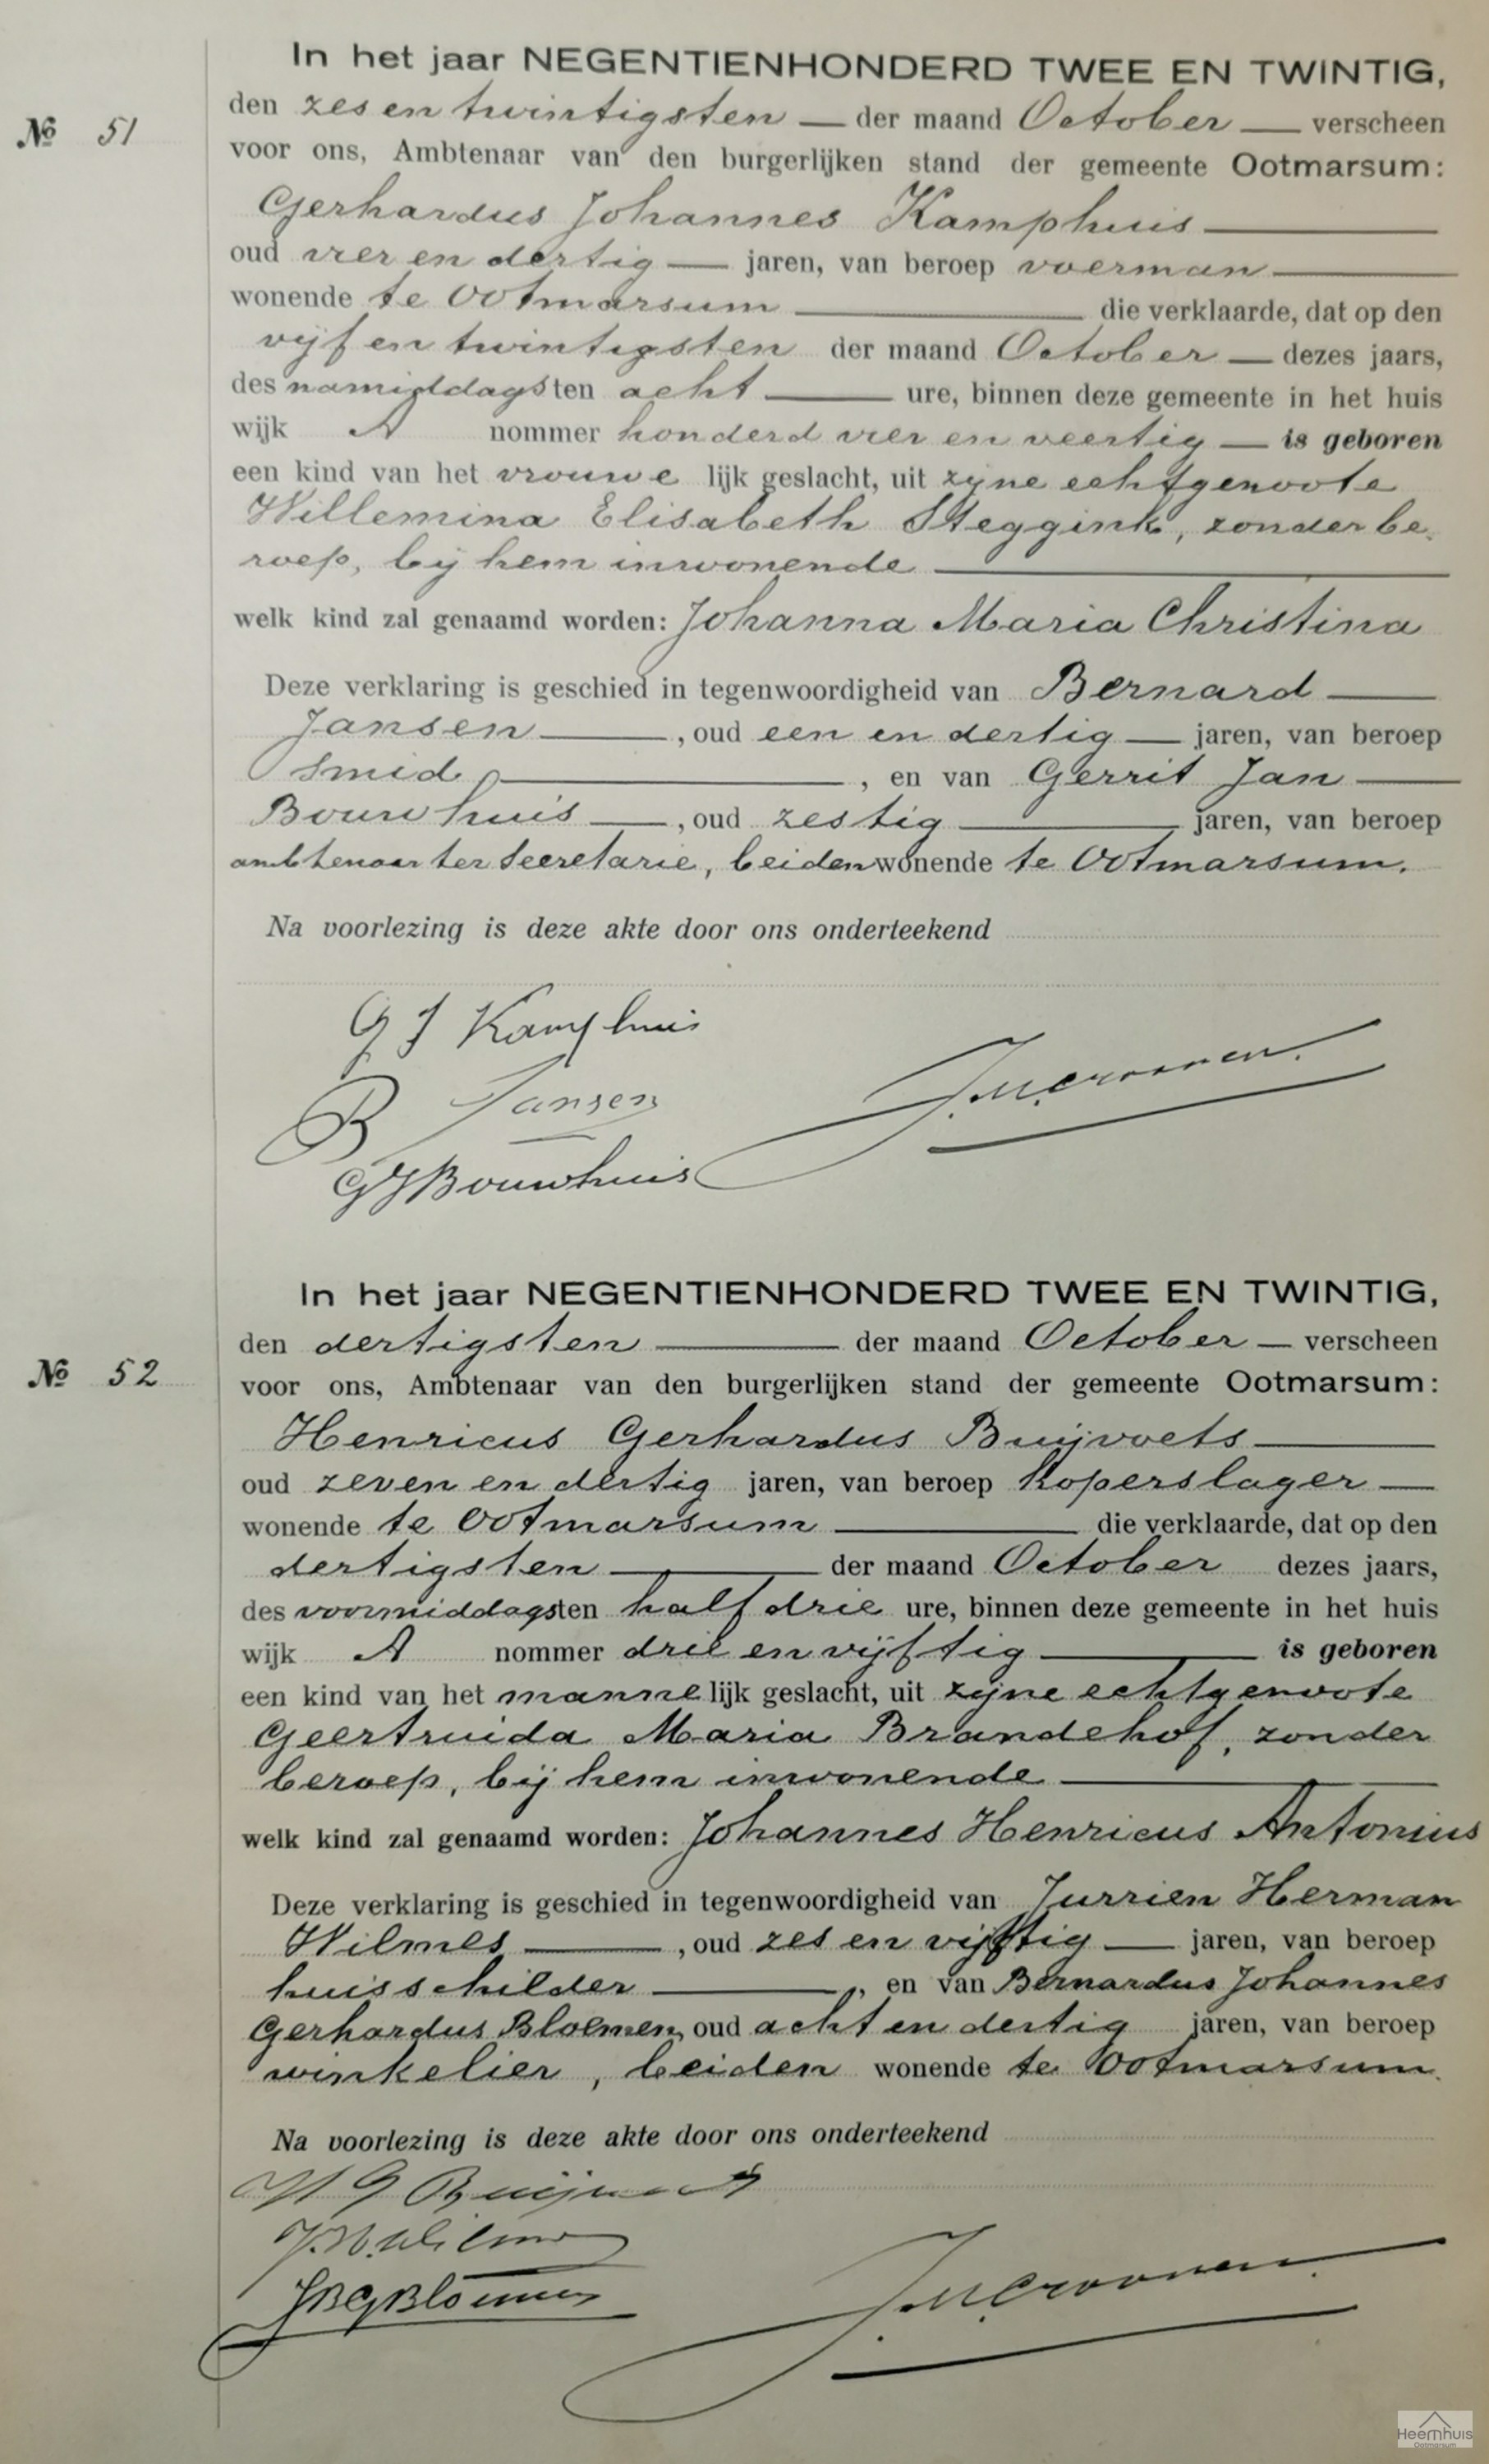 In het jaar NEGENTIENHONDERD TWEE EN TWINTIG,
№ 51
den zes en twintigsten der maand October verscheen
voor ons, Ambtenaar van den burgerlijken stand der gemeente Ootmarsum:
Gerhardus Johannes Kamphuis
oud vier en dertig jaren, van beroep voerman
wonende te Ootmarsum die verklaarde, dat op den
vijf en twintigsten der maand October dezes jaars,
des namiddags ten acht ure, binnen deze gemeente in het huis
wijk A nommer honderd vier en veertig is geboren
een kind van het vrouwe lijk geslacht, uit zijne echtgenoote
Willemina Elisabeth Steggink, zonder be-
roep, bij hem inwonende
welk kind zal genaamd worden: Johanna Maria Christina
Deze verklaring is geschied in tegenwoordigheid van Bernard
Jansen, oud een en dertig jaren, van beroep
smid, en van Gerrit Jan
Bouwhuis, oud zestig jaren, van beroep
ambtenaar ter secretarie, beiden wonende te Ootmarsum.
Na voorlezing is deze akte door ons onderteekend
G J Kamphuis
B Jansen
GJBouwhuis
In het jaar NEGENTIENHONDERD TWEE EN TWINTIG,
den dertigsten der maand October verscheen
№ 52
voor ons, Ambtenaar van den burgerlijken stand der gemeente Ootmarsum:
Henricus Gerhardus Buijvoets
oud zeven en dertig jaren, van beroep koperslager
wonende te Ootmarsum die verklaarde, dat op den
dertigsten der maand October dezes jaars,
des voormiddags ten half drie ure, binnen deze gemeente in het huis
wijk A nommer drie en vijftig is geboren
een kind van het manne lijk geslacht, uit zijne echtgenoote
Geertruida Maria Brandehof, zonder
beroep, bij hem inwonende
welk kind zal genaamd worden: Johannes Henricus Antonius
Deze verklaring is geschied in tegenwoordigheid van Jurrien Herman
Wilmes, oud zes en vijftig jaren, van beroep
huisschilder, en van Bernardus Johannes
Gerhardus Bloemen, oud acht en dertig jaren, van beroep
winkelier, beiden wonende te Ootmarsum.
Na voorlezing is deze akte door ons onderteekend
H G Buijvoets
Heemhuis
Ootmarsum